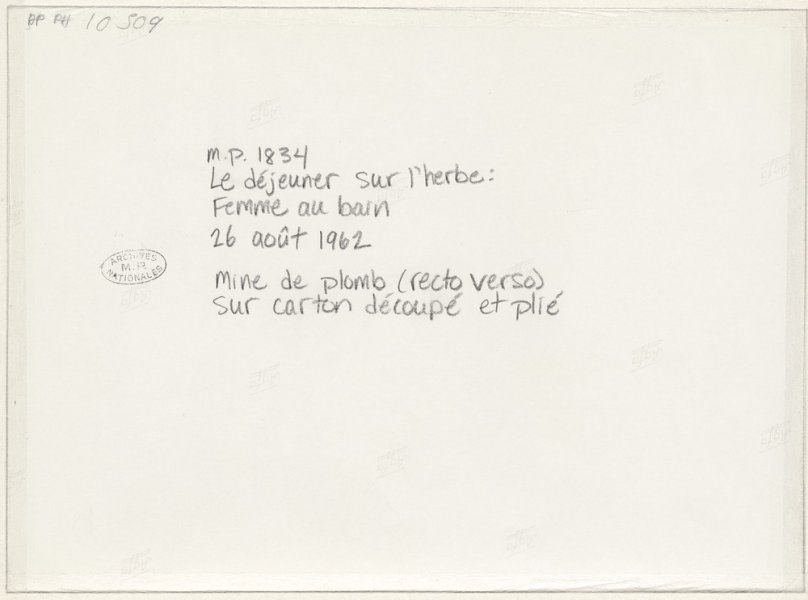 DP PH 10 509
M.P. 1834
Le déjeuner sur l'herbe:
Femme au bain
26 août 1962
ARCHIVES
M.P.
NATIONALES
Mine de plomb (recto verso)
sur carton découpé et plié